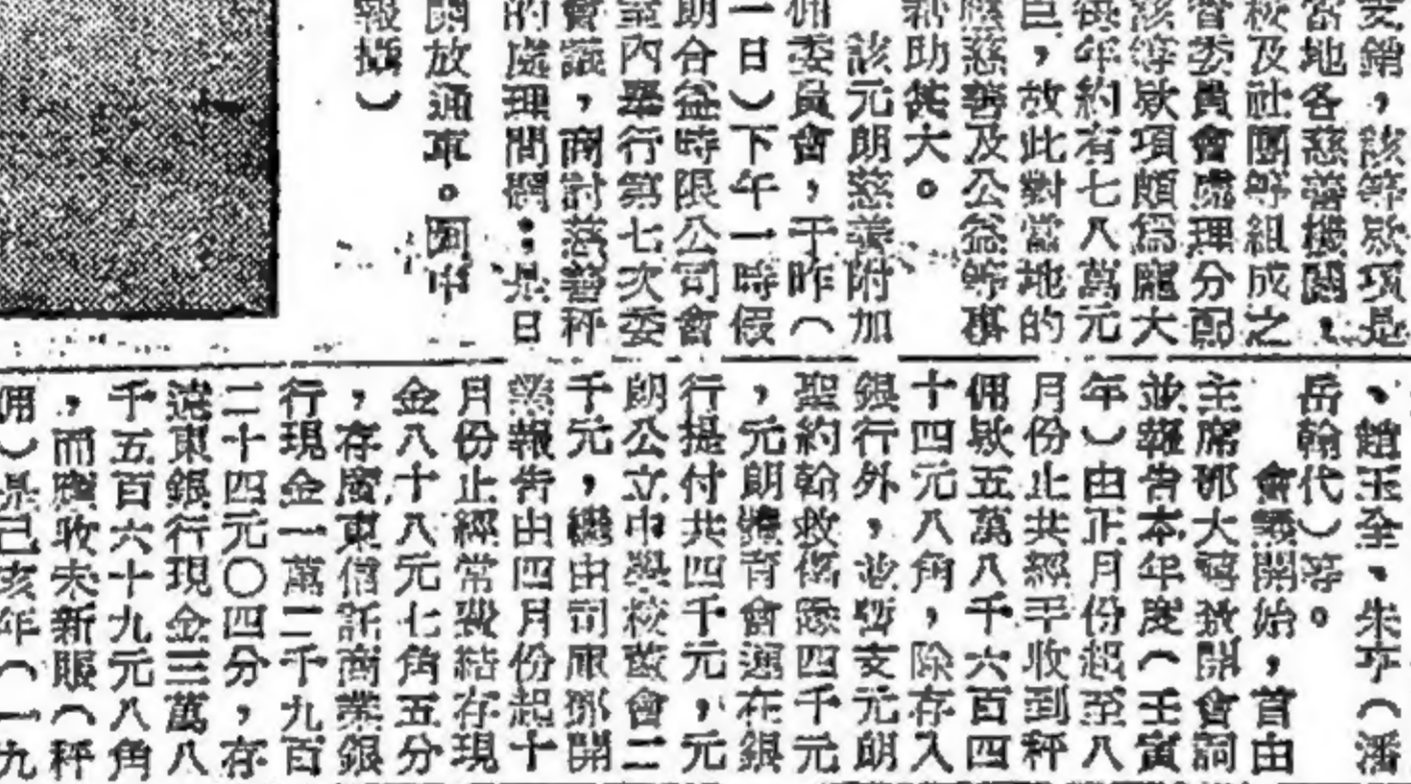 支銷，該等欵項是
當地各慈善機關、
校及社團等組成之
委員會處理分配
該等欵項頗爲龐大
每年約有七八萬元
巨，故此對當地的
慈善及公益等事
助甚大。
該元朗慈善附加
佣委員會，于昨（
一日）下午一時假
朗合益時限公司會
室內舉行第七次委
會議，商討慈善秤
的處理問題：是日
開放通車。
報攝）
、趙玉全、朱亨（潘
岳翰代）等。
會議開始，首由
主席鄧大致開會詞
並報告本年度（壬寅
年）由正月份起至八
月份止共經手收到秤
佣欵五萬八千六百四
十四元八角，除存入
銀行外，並暫支元朗
聖約翰救傷隊四千元
，元朗體育會運在銀
行提付共四千元，元
朗公立中學校董會二
千元，繼由司庫鄧開
業報告由四月份起十
月份止經常費結存現
金八十八元七角五分
，存廣東信託商業銀
行現金一萬二千九百
二十四元〇四分，存
遠東銀行現金三萬八
千五百六十九元八角
，而應收未新賬（秤
佣）是己亥年（一九